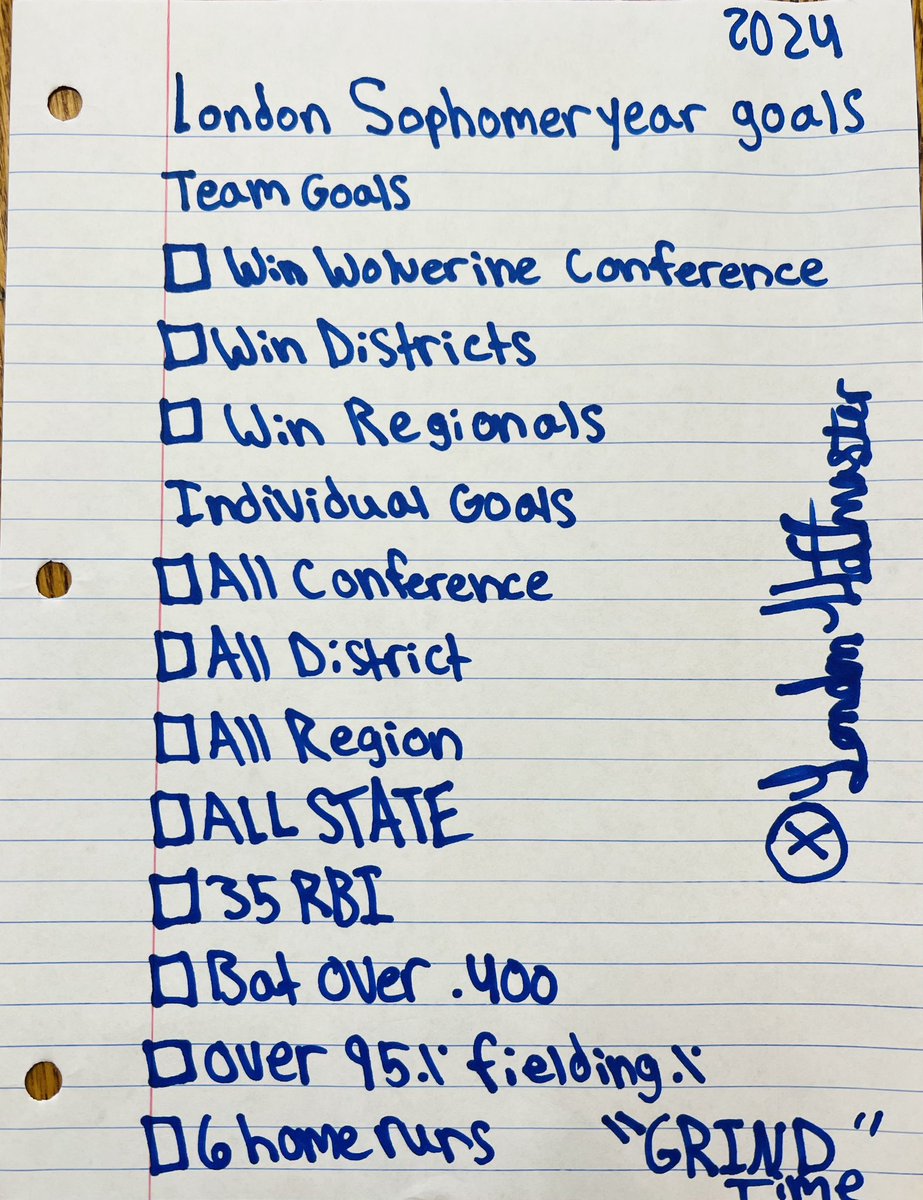 2024
London Sophomer year goals
Team Goals
Win Wolverine Conference
Win Districts
Win Regionals
Individual Goals
All Conference
All District
All Region
ALL STATE
35 RBI
Bat over .400
over 95% fielding %
6 home runs
"GRIND"
Time
X London Hoffmaster